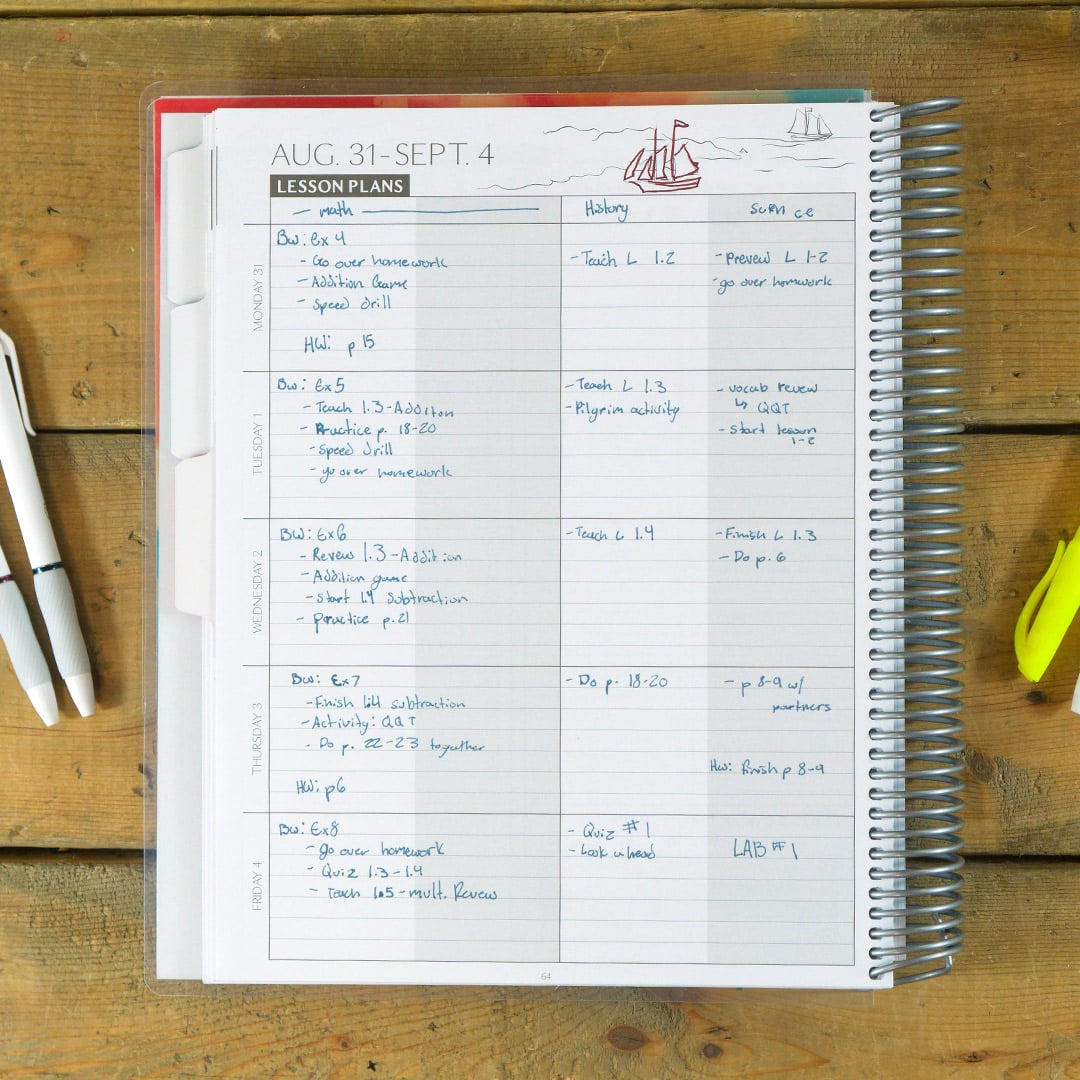 AUG. 31-SEPT. 4
LESSON PLANS
math
History
Science
MONDAY 31
BW: Ex 4
- Go over homework
- Addition Game
- Speed drill
HW: p 15
- Teach L 1.2
- Preveiw L 1-2
- go over homework
TUESDAY 1
BW: Ex 5
- Teach 1.3 - Additon
- Practice p. 18-20
- Speed drill
- go over homework
- Teach L 1.3
- Pilgrim activity
- vocab reveiw
↳ QQT
- Start lesson
1-2
WEDNESDAY 2
BW: Ex6
- Reveiw 1.3 - Addition
- Addition game
- Start 1.4 Subtraction
- practice p. 21
- Teach L 1.4
- Finish L 1.3
- Do p. 6
THURSDAY 3
BW: Ex7
- Finish 1.4 subtraction
- Activity: QQT
- Do p. 22-23 together
HW: p6
- Do p. 18-20
- p 8-9 w/
partners
HW: Finish p 8-9
FRIDAY 4
BW: Ex8
- go over homework
- Quiz 1.3-1.4
- Teach 1.5 - mult. Reveiw
- Quiz #1
- Look ahead
LAB #1
64